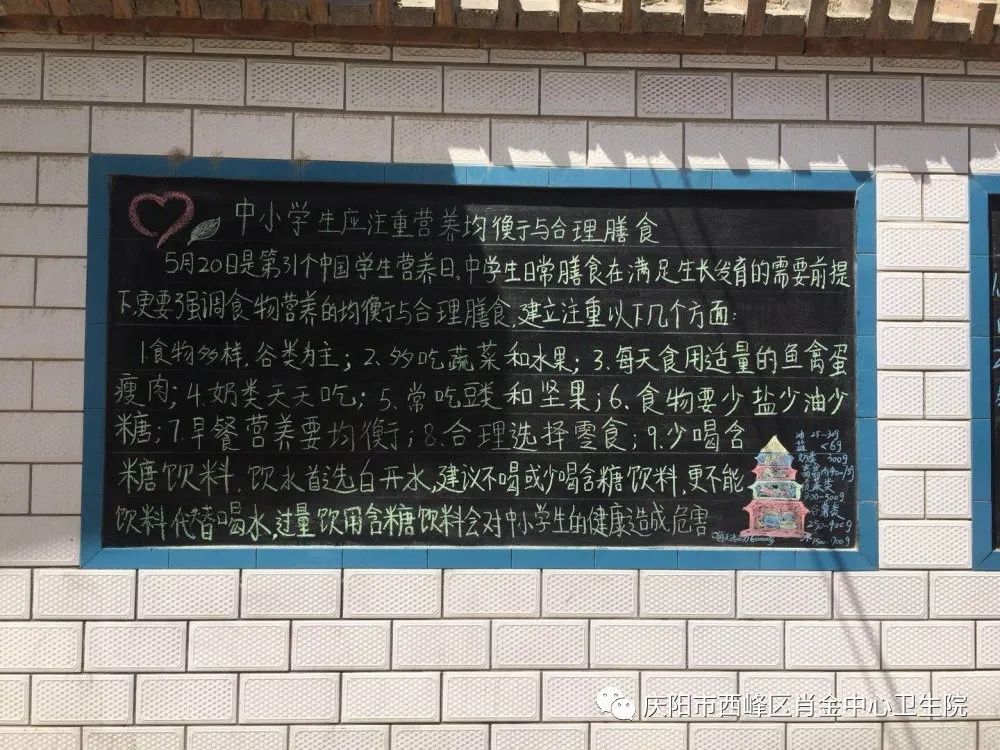 中小学生应注重营养均衡与合理膳食
5月20日是第31个中国学生营养日,中学生日常膳食在满足生长发育的需要前提
下,更要强调食物营养的均衡与合理膳食,建立注重以下几个方面:
1食物多样,谷类为主;2.多吃蔬菜和水果;3.每天食用适量的鱼禽蛋
瘦肉;4.奶类天天吃;5.常吃豆类和坚果;6.食物要少盐少油少
糖;7.早餐营养要均衡;8.合理选择零食;9.少喝含
糖饮料,饮水首选白开水,建议不喝或少喝含糖饮料,更不能
饮料代替喝水,过量饮用含糖饮料会对中小学生的健康造成危害
油 25-30g
盐 <6g
奶类 300g
谷薯类
250-400g
庆阳市西峰区肖金中心卫生院